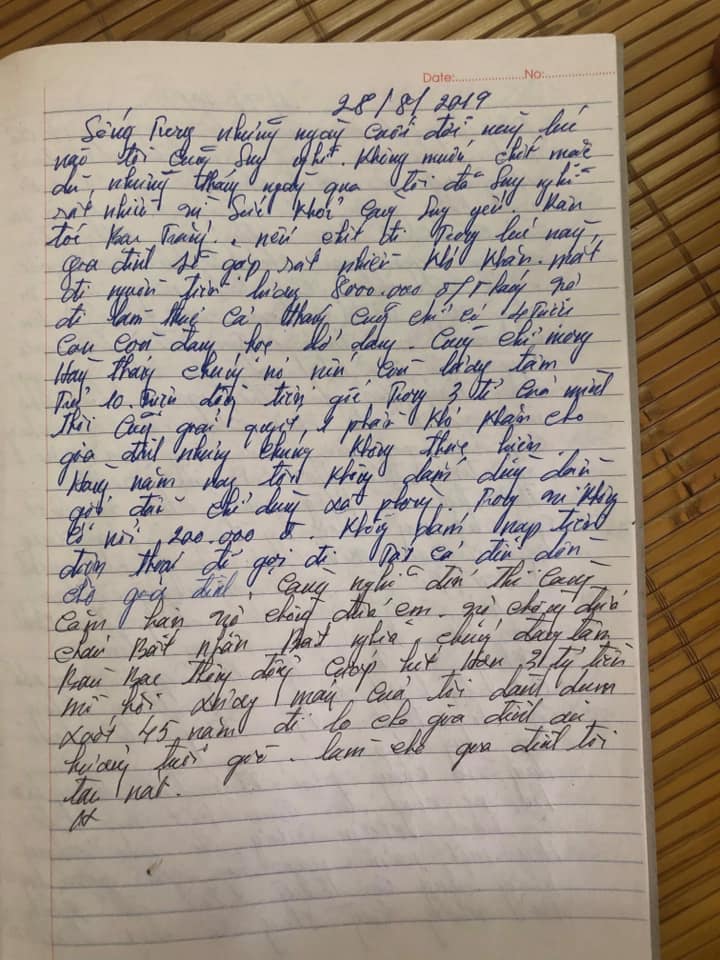 Date:..................No:..................
28/8/2019
Sống Trong những ngày cuối đời này lúc
nào tôi cũng suy nghĩ. Không muốn chết mặc
dù, những tháng ngày qua tôi đã suy nghĩ
rất nhiều vì sức khỏe càng suy yếu.
tóc Bạc Trắng. nếu chết đi Trong lúc này,
gia đình sẽ gặp rất nhiều khó khăn. mất
đi nguồn tiền lương 8000.000 đ/tháng vợ
đi làm thuê cả tháng cũng chỉ có 4 Triệu
con còn đang học dở dang. Cũng chỉ mong
Hàng tháng chúng nó nếu còn lương tâm
Trả 10 Triệu đồng tiền gốc Trong 3 tỉ của mình
thôi cũng giải quyết 1 phần khó khăn cho
gia đình nhưng chúng không thực hiện.
Hàng năm nay tôi không dám dùng dầu
gội đầu chỉ dùng xà phòng. Trong ví không
có nổi 200.000 đ. Không dám nạp tiền
điện thoại để gọi đi. Tất cả đều dồn
cho gia đình. Càng nghĩ đến thì càng
căm hận vợ chồng đứa em. vợ chồng đứa
cháu Bất nhân Bất nghĩa chúng đang tâm
Bàn Bạc thông đồng cướp hết Hơn 3 tỷ tiền
mồ hôi xương máu của tôi dành dụm
suốt 45 năm để lo cho gia đình an
hưởng tuổi già. làm cho gia đình tôi
tan nát.